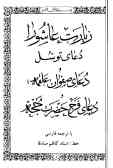 زیارت عاشورا
دعای توسل
دعای صفوان علقمه
دعای فرج حضرت حجة
با ترجمه فارسی